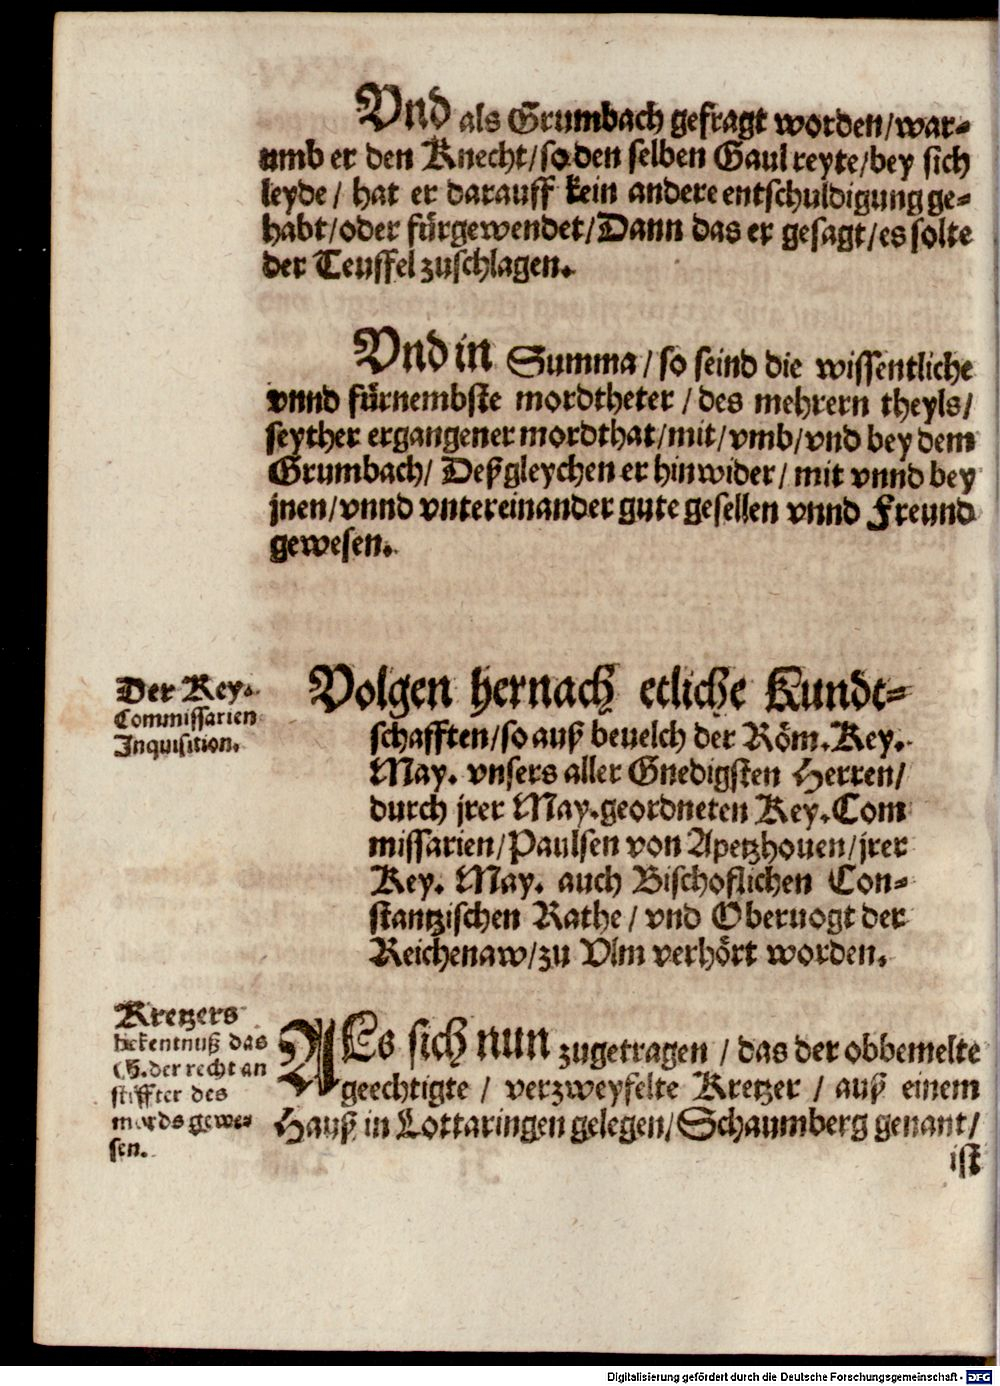 Vnd als Grumbach gefragt worden/war-
umb er den Knecht/so den selben Gaul reyte/bey sich
leyde/ hat er darauff kein andere entschuldigung ge-
habt/oder fürgewendet/Dann das er gesagt/es solte
der Teuffel zuschlagen.
Vnd in Summa/ so seind die wissentliche
vnnd fürnembste mordtheter / des mehrern theyls/
seyther ergangener mordthat/mit/vmb/vnd bey dem
Grumbach/ Deßgleychen er hinwider/ mit vnnd bey
jnen/vnnd vntereinander gute gesellen vnnd Freund
gewesen.
Der Key.
Commissarien
Inquisition.
Volgen hernach etliche Kundt-
schafften/so auß beuelch der Röm.Key.
May. vnsers aller Gnedigsten Herren/
durch jrer May.geordneten Key.Com
missarien/Paulsen von Apetzhouen/jrer
Key. May. auch Bischoflichen Con-
stantzischen Rathe/ vnd Oberuogt der
Reichenaw/zu Vlm verhört worden.
Kretzers
bekentnuß das
G.der recht an
stiffter des
mords gewe-
sen.
ALs sich nun zugetragen / das der obbemelte
geechtigte / verzweyfelte Kretzer / auß einem
Hauß in Lottaringen gelegen/Schaumberg genant/
ist
Digitalisierung gefördert durch die Deutsche Forschungsgemeinschaft - DFG